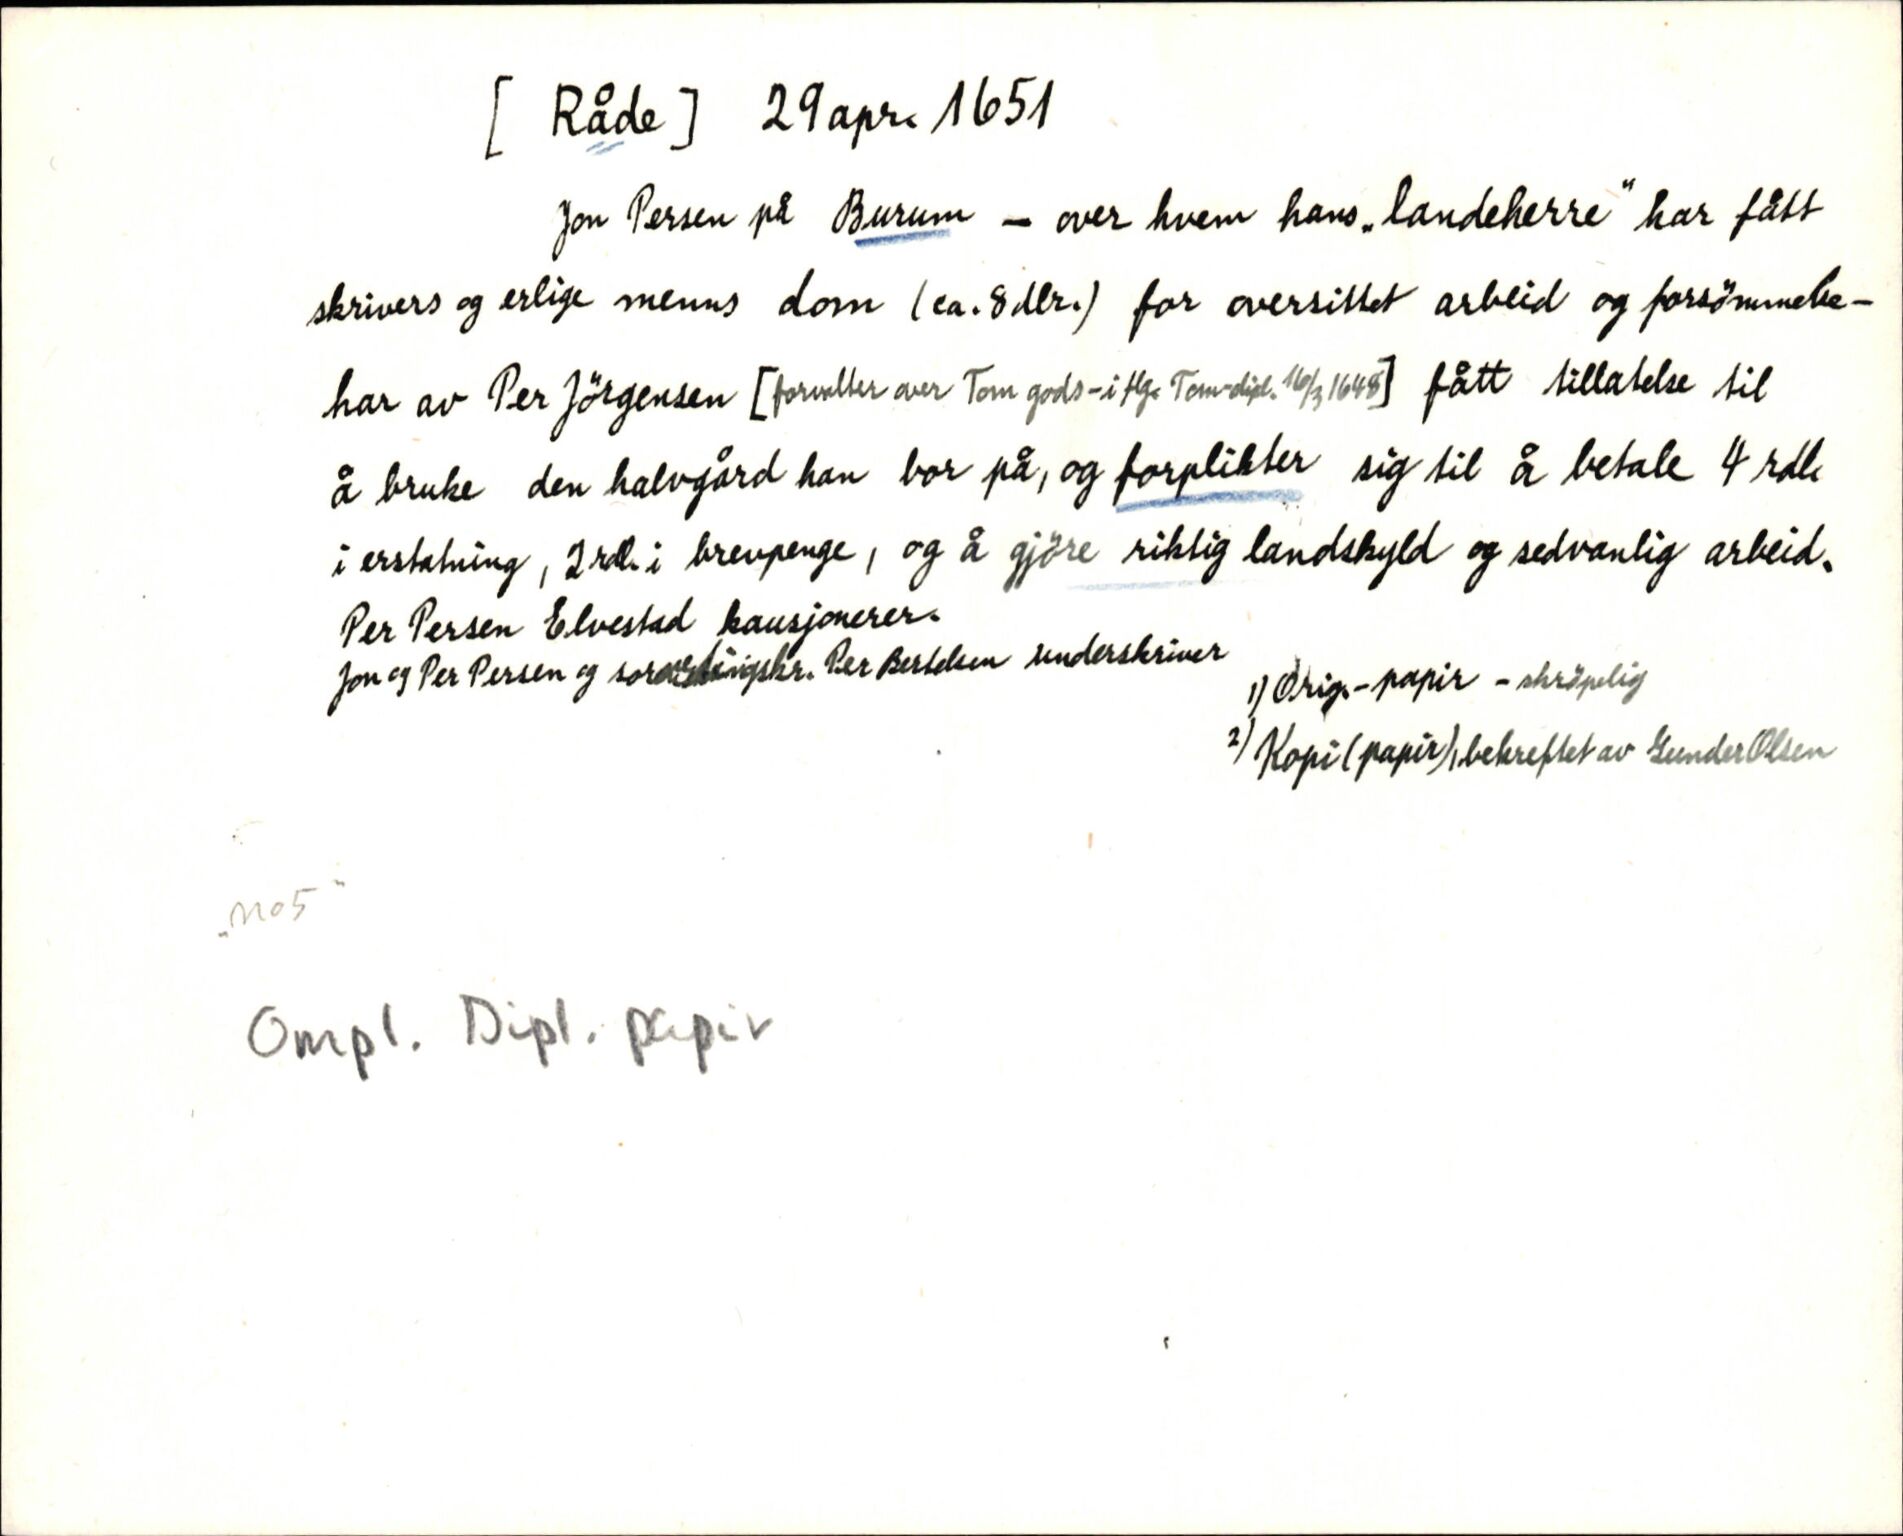 [ Råde ] 29 apr. 1651
Jon Persen på Burum – over hvem hans „landeherre" har fått
skrivers og erlige menns dom (ca. 8 dlr.) for oversittet arbeid og forsömmelse –
har av Per Jörgensen [forvalter over Tom gods – i flg. Tom-dipl. 16/3 1648] fått tillatelse til
å bruke den halvgård han bor på, og forplikter sig til å betale 4 rdl.
i erstatning, 2 rdl. i brevpenge, og å gjöre riktig landskyld og sedvanlig arbeid.
Per Persen Elvestad kausjonerer.
Jon og Per Persen og sorenskr. Per Bertelsen underskriver
1) Orig. – papir – skröpelig
2) Kopi (papir), bekreftet av Gunder Olsen
„No 5"
Ompl. Dipl. papir